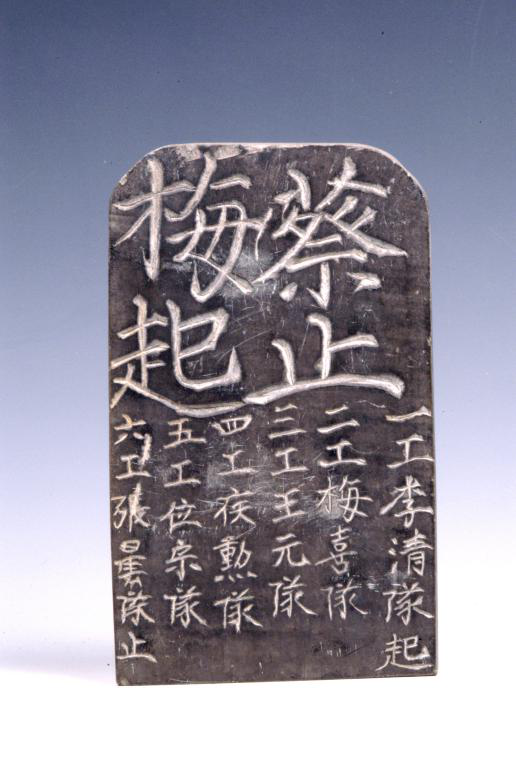 蔡止
梅起
一工李清隊起
二工梅喜隊
三工王元隊
四工侯勲隊
五工位宗隊
六工張隊止